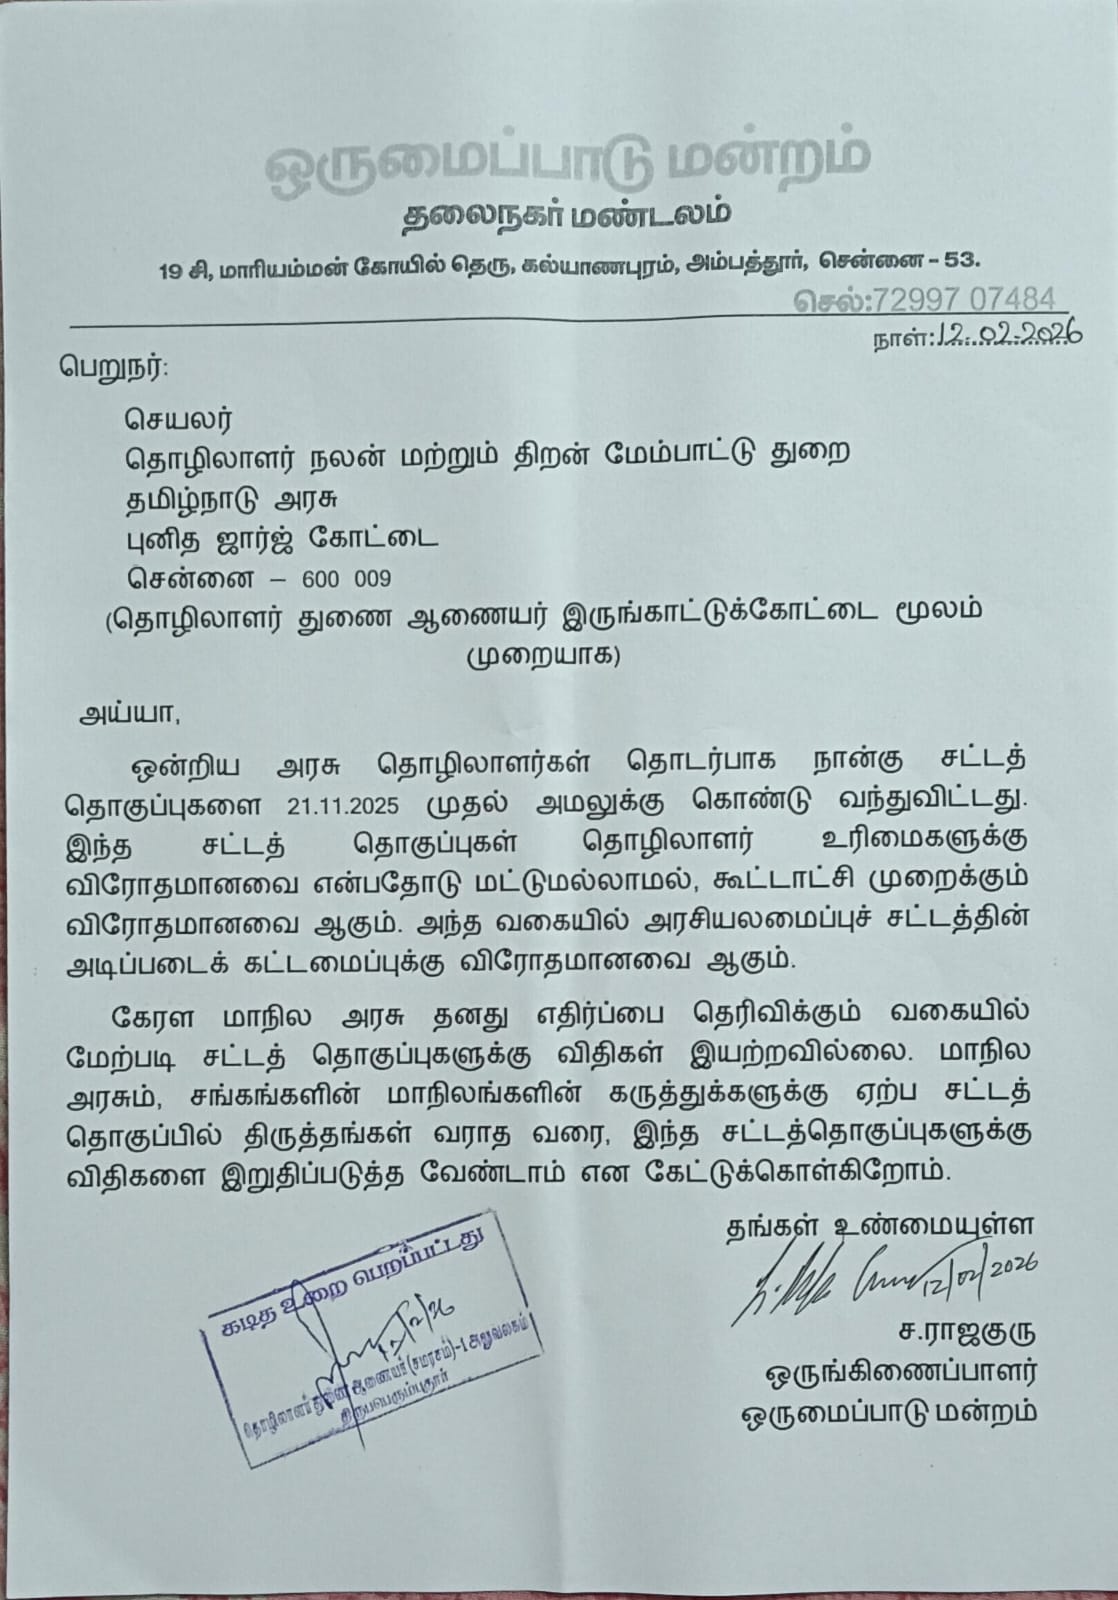 ஒருமைப்பாடு மன்றம்
தலைநகர் மண்டலம்
19 சி, மாரியம்மன் கோயில் தெரு, கல்யாணபுரம், அம்பத்தூர், சென்னை - 53.
செல்:72997 07484
நாள்:12-02-2026
பெறுநர்:
செயலர்
தொழிலாளர் நலன் மற்றும் திறன் மேம்பாட்டு துறை
தமிழ்நாடு அரசு
புனித ஜார்ஜ் கோட்டை
சென்னை – 600 009
(தொழிலாளர் துணை ஆணையர் இருங்காட்டுக்கோட்டை மூலம்
முறையாக)
அய்யா,
ஒன்றிய அரசு தொழிலாளர்கள் தொடர்பாக நான்கு சட்டத்
தொகுப்புகளை 21.11.2025 முதல் அமலுக்கு கொண்டு வந்துவிட்டது.
இந்த சட்டத் தொகுப்புகள் தொழிலாளர் உரிமைகளுக்கு
விரோதமானவை என்பதோடு மட்டுமல்லாமல், கூட்டாட்சி முறைக்கும்
விரோதமானவை ஆகும். அந்த வகையில் அரசியலமைப்புச் சட்டத்தின்
அடிப்படைக் கட்டமைப்புக்கு விரோதமானவை ஆகும்.
கேரள மாநில அரசு தனது எதிர்ப்பை தெரிவிக்கும் வகையில்
மேற்படி சட்டத் தொகுப்புகளுக்கு விதிகள் இயற்றவில்லை. மாநில
அரசும், சங்கங்களின் மாநிலங்களின் கருத்துக்களுக்கு ஏற்ப சட்டத்
தொகுப்பில் திருத்தங்கள் வராத வரை, இந்த சட்டத்தொகுப்புகளுக்கு
விதிகளை இறுதிப்படுத்த வேண்டாம் என கேட்டுக்கொள்கிறோம்.
தங்கள் உண்மையுள்ள
12/02/2026
ச.ராஜகுரு
ஒருங்கிணைப்பாளர்
ஒருமைப்பாடு மன்றம்
கடித உறை பெறப்பட்டது
தொழிலாளர் துணை ஆணையர் (சமரசம்)-1 அலுவலகம்
திருபெரும்புதூர்